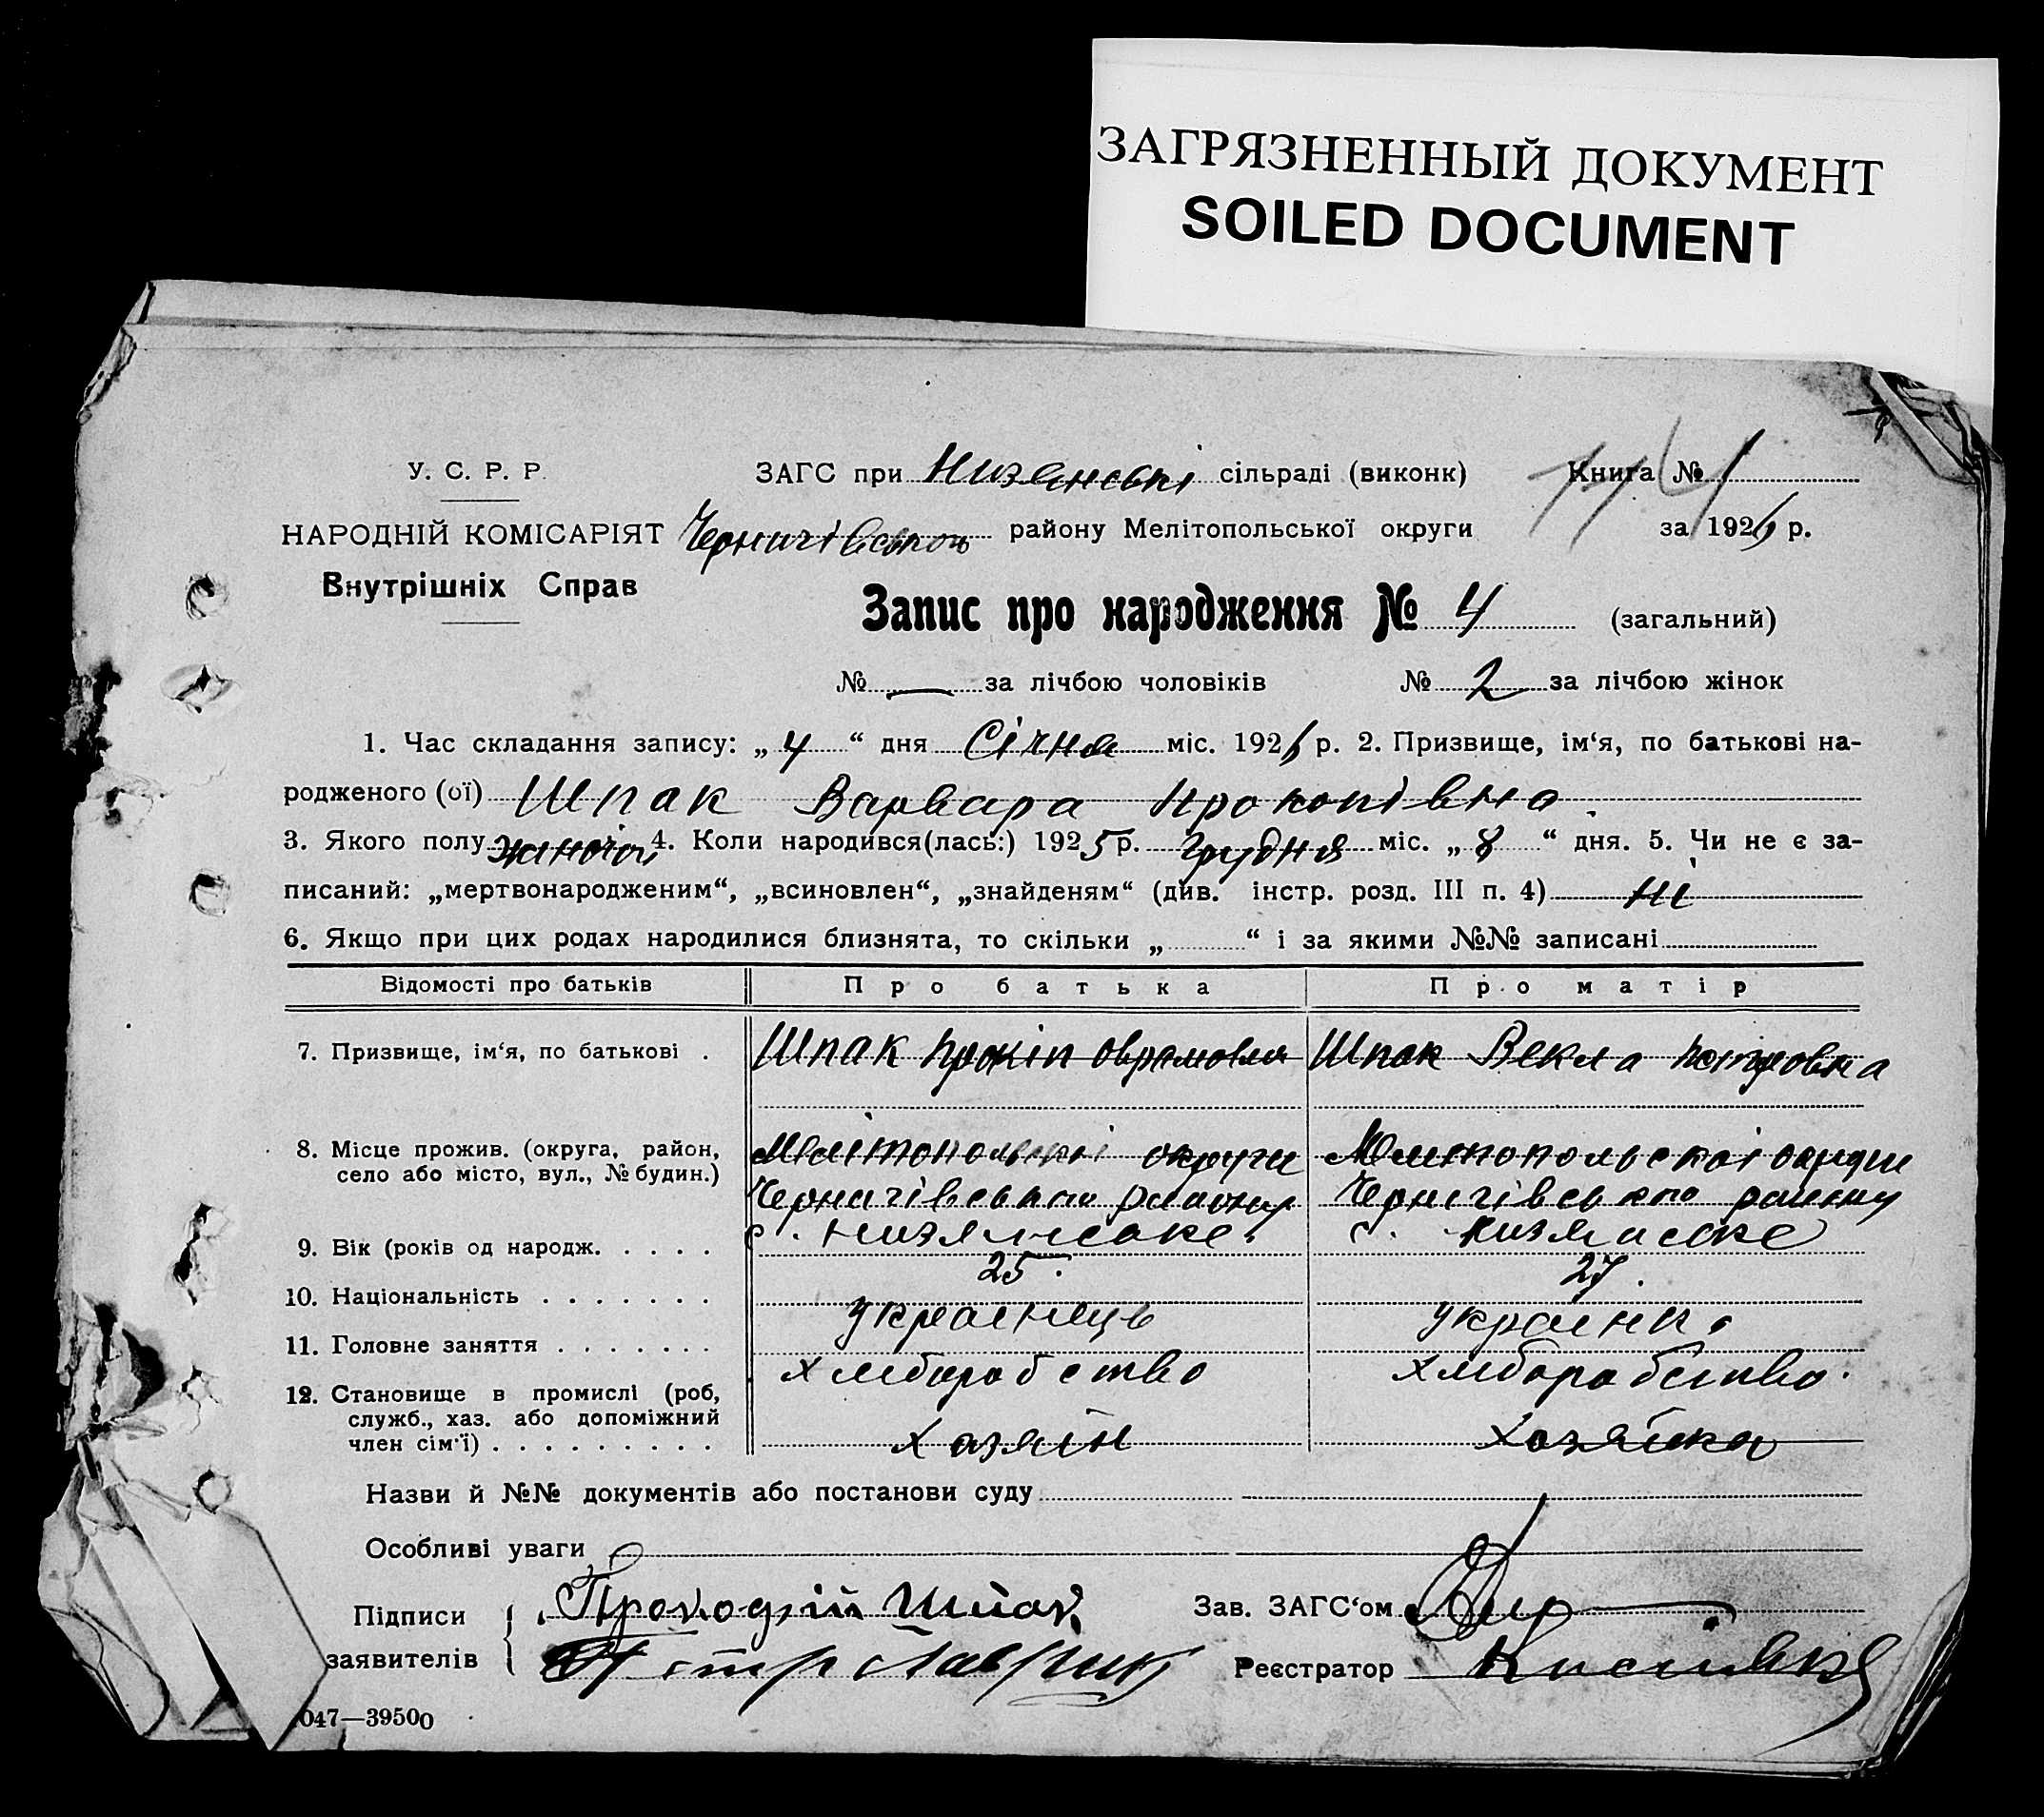 ЗАГРЯЗНЕННЫЙ ДОКУМЕНТ
SOILED DOCUMENT
У. С. Р. Р. ЗАГС при Низянські сільраді (виконк) Книга № 1
НАРОДНІЙ КОМІСАРІЯТ Чернигівського району Мелітопольської округи за 1926 р.
Внутрішніх Справ
Запис про народження № 4 (загальний)
№ — за лічбою чоловіків № 2 за лічбою жінок
1. Час складання запису: „4“ дня Січня міс. 1926 р. 2. Призвище, ім‘я, по батькові на-
родженого (ої) Шпак Варвара Прокопівна.
3. Якого полу жиночої 4. Коли народився(лась:) 1925 р. грудня міс. „8“ дня. 5. Чи не є за-
писаний: „мертвонародженим“, „всиновлен“, „знайденям“ (див. інстр. розд. III п. 4) ні
6. Якщо при цих родах народилися близнята, то скільки „ “ і за якими №№ записані
Відомості про батьків Про батька Про матір
7. Призвище, ім‘я, по батькові . Шпак Прокіп Шпак Векла Петровна
8. Місце прожив. (округа, район, село або місто, вул., № будин.) Мелітопольскі округи Мелитопольскоі округи
Чернигівського району Чернигівського району
с. Низянське. с. Низянське
9. Вік (років од народж. . . . . 25. 27.
10. Національність . . . . . . . українець українк.
11. Головне заняття . . . . . . . хлиборобство хлиборобство.
12. Становище в промислі (роб,
служб., хаз. або допоміжний
член сім‘ї) . . . . . . . . . хозяїн хозяйка
Назви й №№ документів або постанови суду
Особливі уваги
Підписи Шпак Зав. ЗАГС‘ом
заявителів Петр Лаврик Реєстратор
047—39500